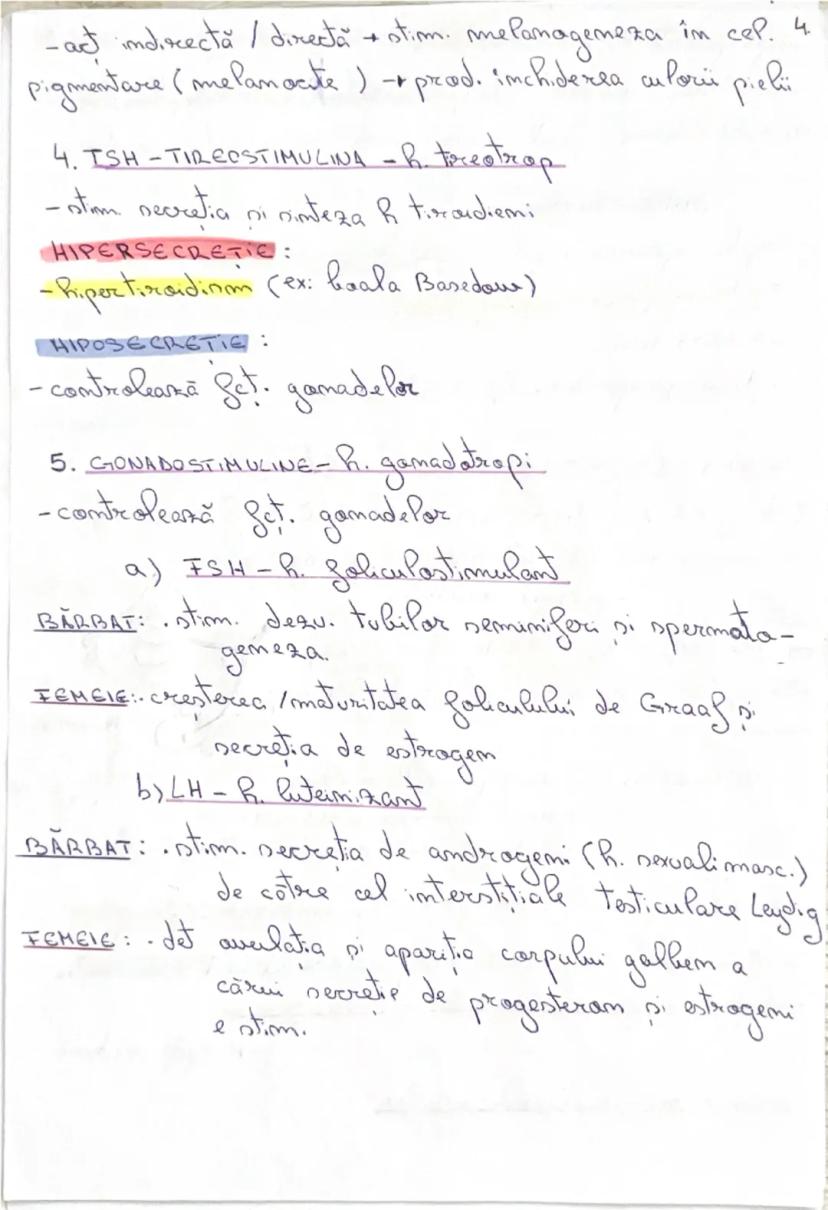 4.
- acț indirectă / directă → stim. melanogeneza în cel.
pigmentare (melanocite) → prod. închiderea culorii pielii
4. TSH - TIREOSTIMULINA - h. tireotrop
- stim. secreția și sinteza h tiroidieni
HIPERSECREȚIE :
- hipertiroidism (ex: boala Basedow)
HIPOSECREȚIE :
- controlează fcț. gonadelor
5. GONADOSTIMULINE - h. gonadotropi
- controlează fcț. gonadelor
a) FSH - h. foliculostimulant
BĂRBAT: . stim. dezv. tubilor seminiferi și spermato-
geneza.
FEMEIE: . creșterea / maturitatea foliculului de Graaf și
secreția de estrogen
b) LH - h. luteinizant
BĂRBAT: . stim. secreția de androgeni (h. sexuali masc.)
de către cel interstițiale testiculare Leydig
FEMEIE: . det ovulația și apariția corpului galben a
cărui secreție de progesteron și estrogeni
e stim.